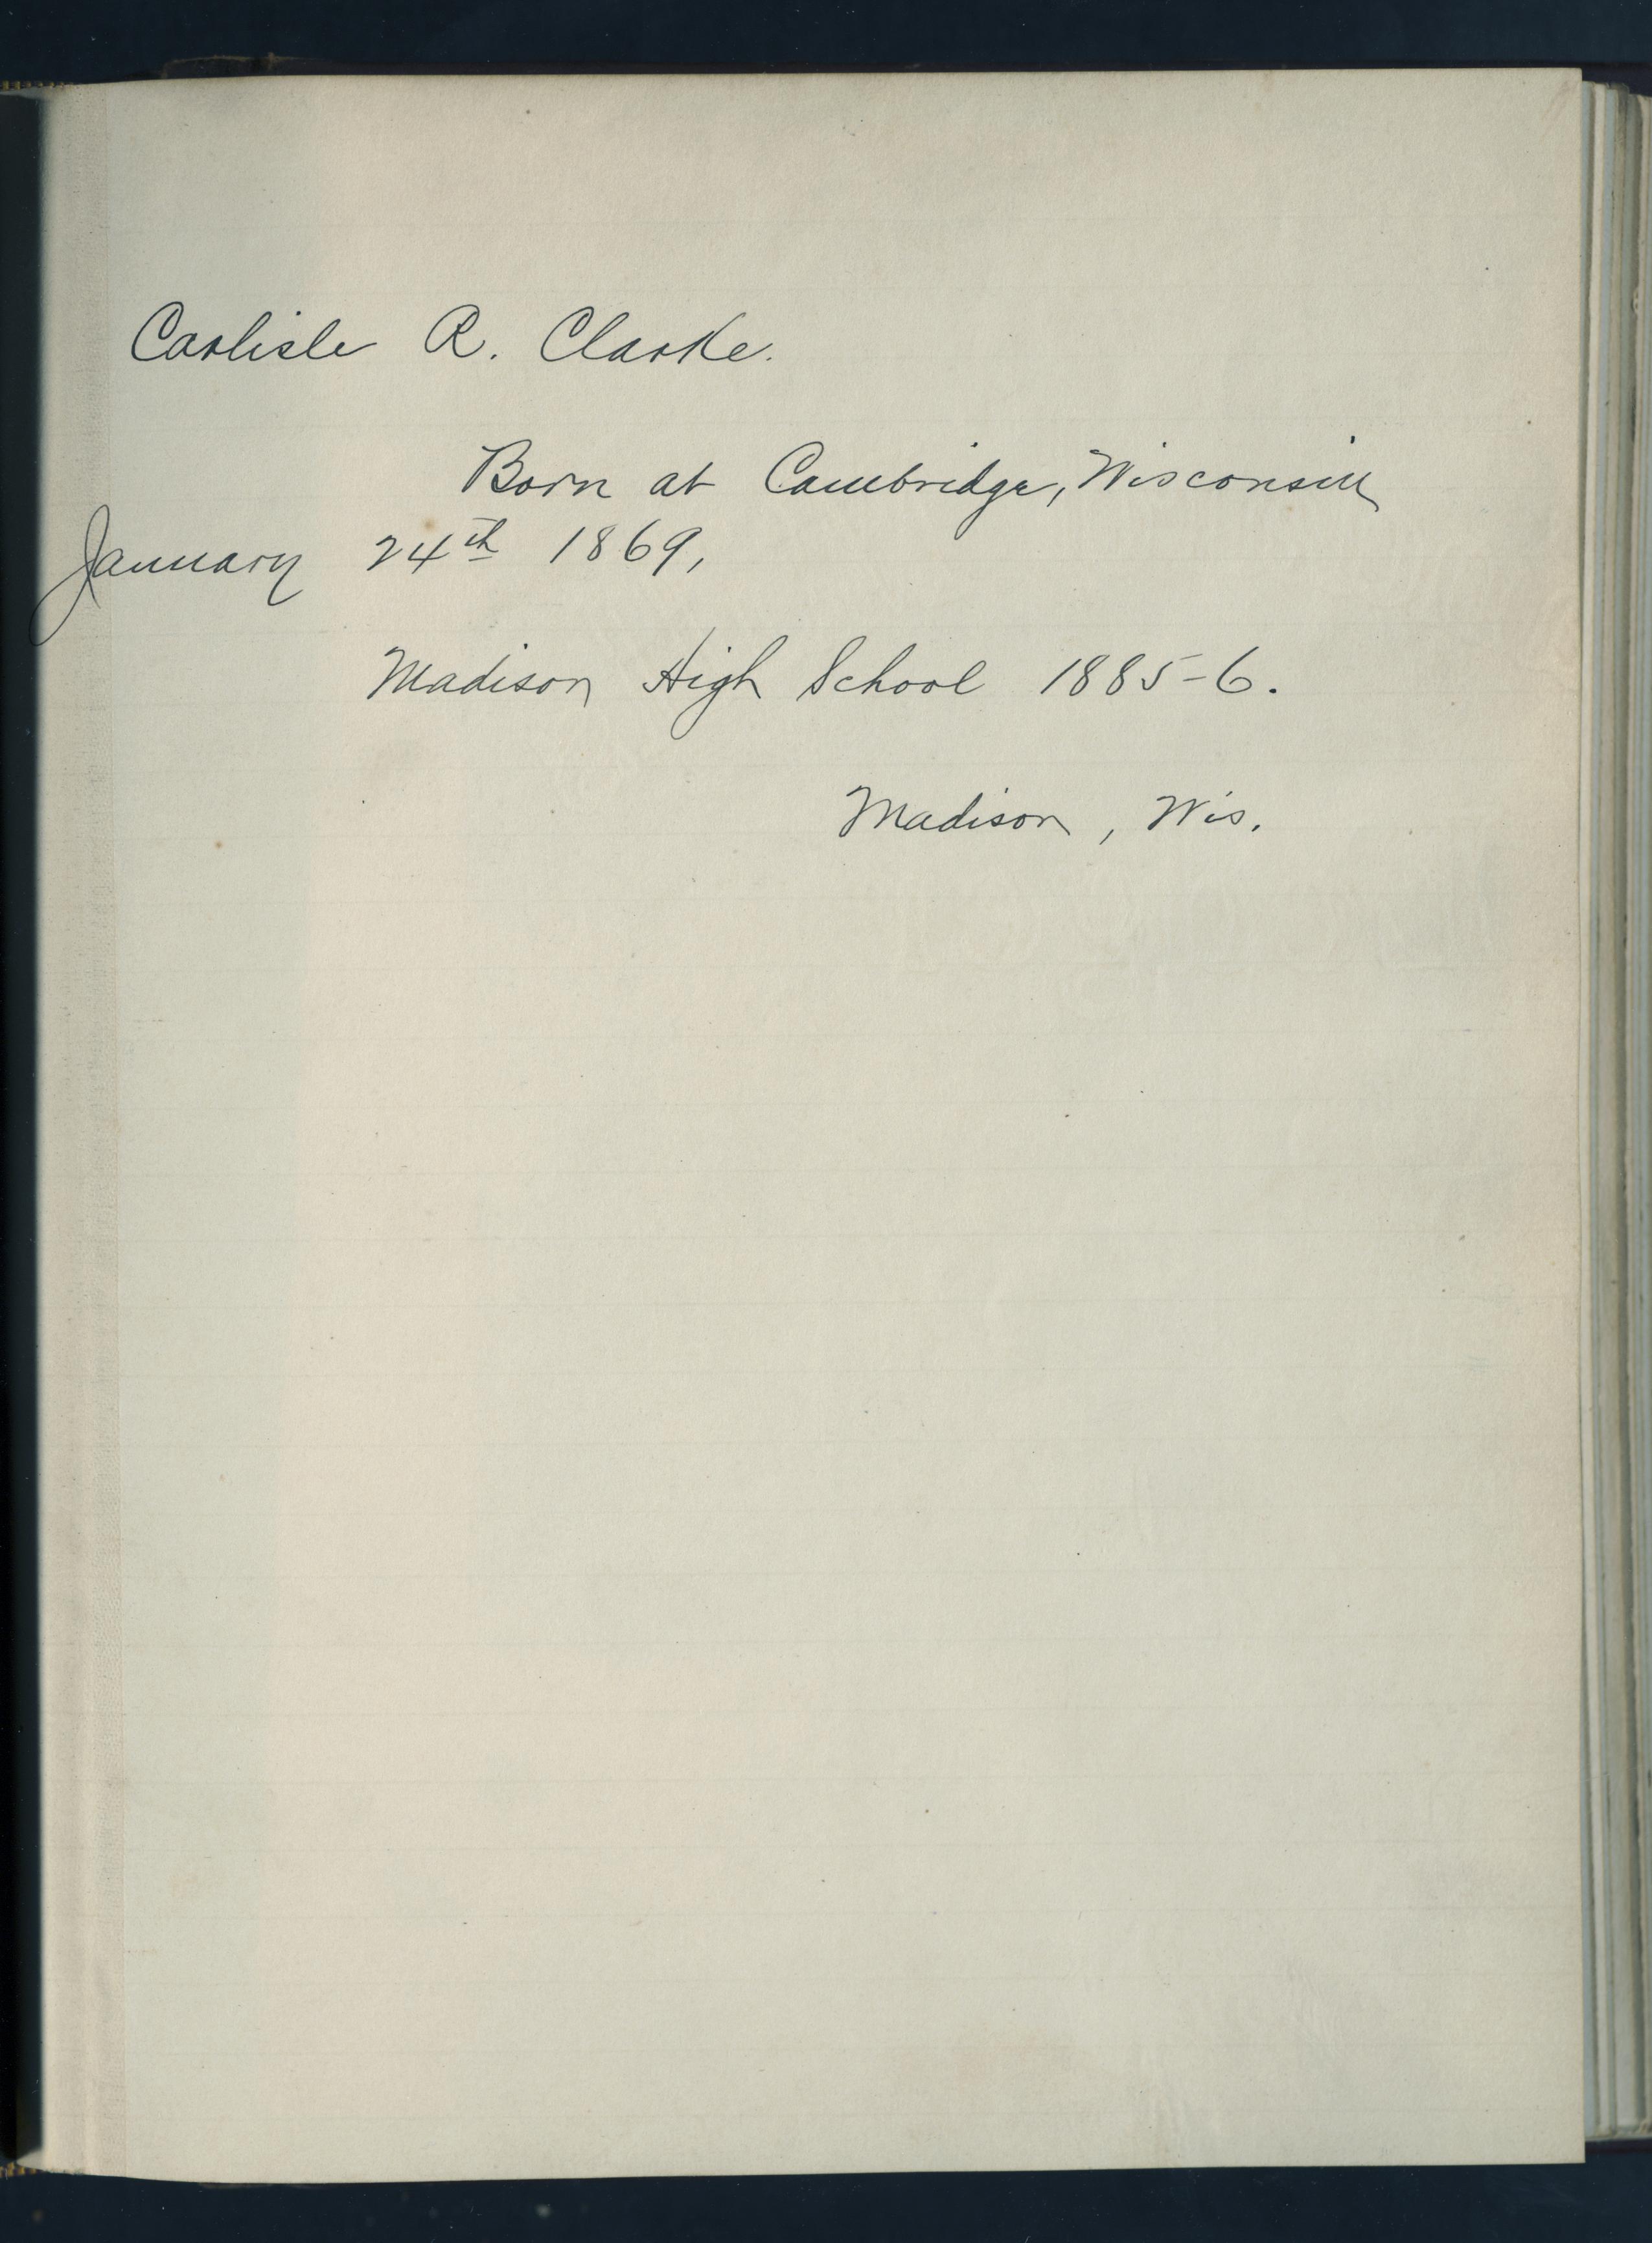 Carlisle R. Clarke.
Born at Cambridge, Wisconsin
January 24th 1869,
Madison High School 1885-6.
Madison, Wis.